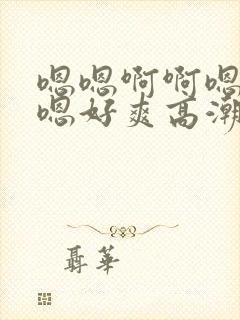 嗯嗯啊啊嗯
嗯好爽高潮
聂华